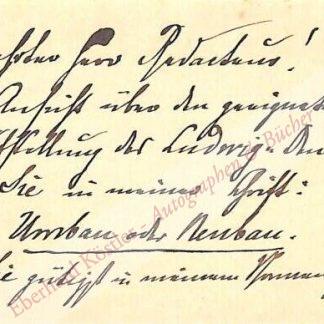 ehrter Herr Redacteur!
Ansicht über den geeignet
stellung des Ludwig-Den
Sie in meiner Schrift:
Umbau oder Neubau.
Sie gütigst in meinem Namen
Eberhard Köstler - Autographen & Bücher